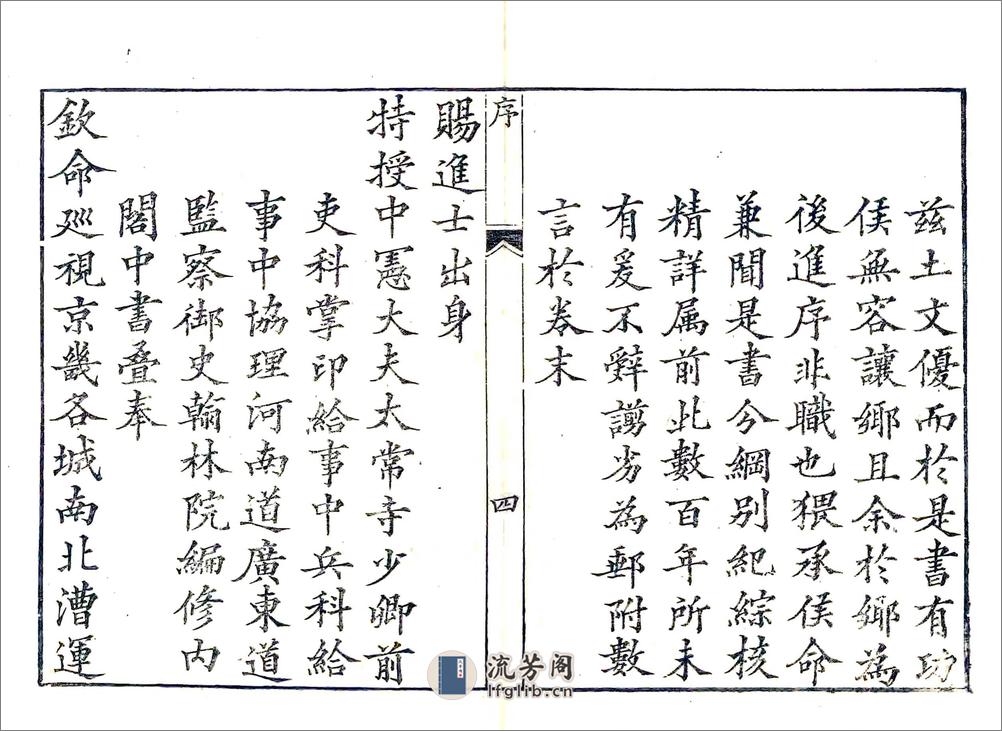 茲土文優而於是書有功
侯無容讓鄉且余於鄉為
後進序非職也猥承侯命
兼聞是書分綱別紀綜核
精詳属前此數百年所未
有爰不辭謭劣為郵附數
言於卷末
序
四
賜進士出身
特授中憲大夫太常寺少卿前
吏科掌印給事中兵科給
事中協理河南道廣東道
監察御史翰林院編修內
閣中書叠奉
欽命廵視京畿各城南北漕運
流芳阁
lfglib.cn